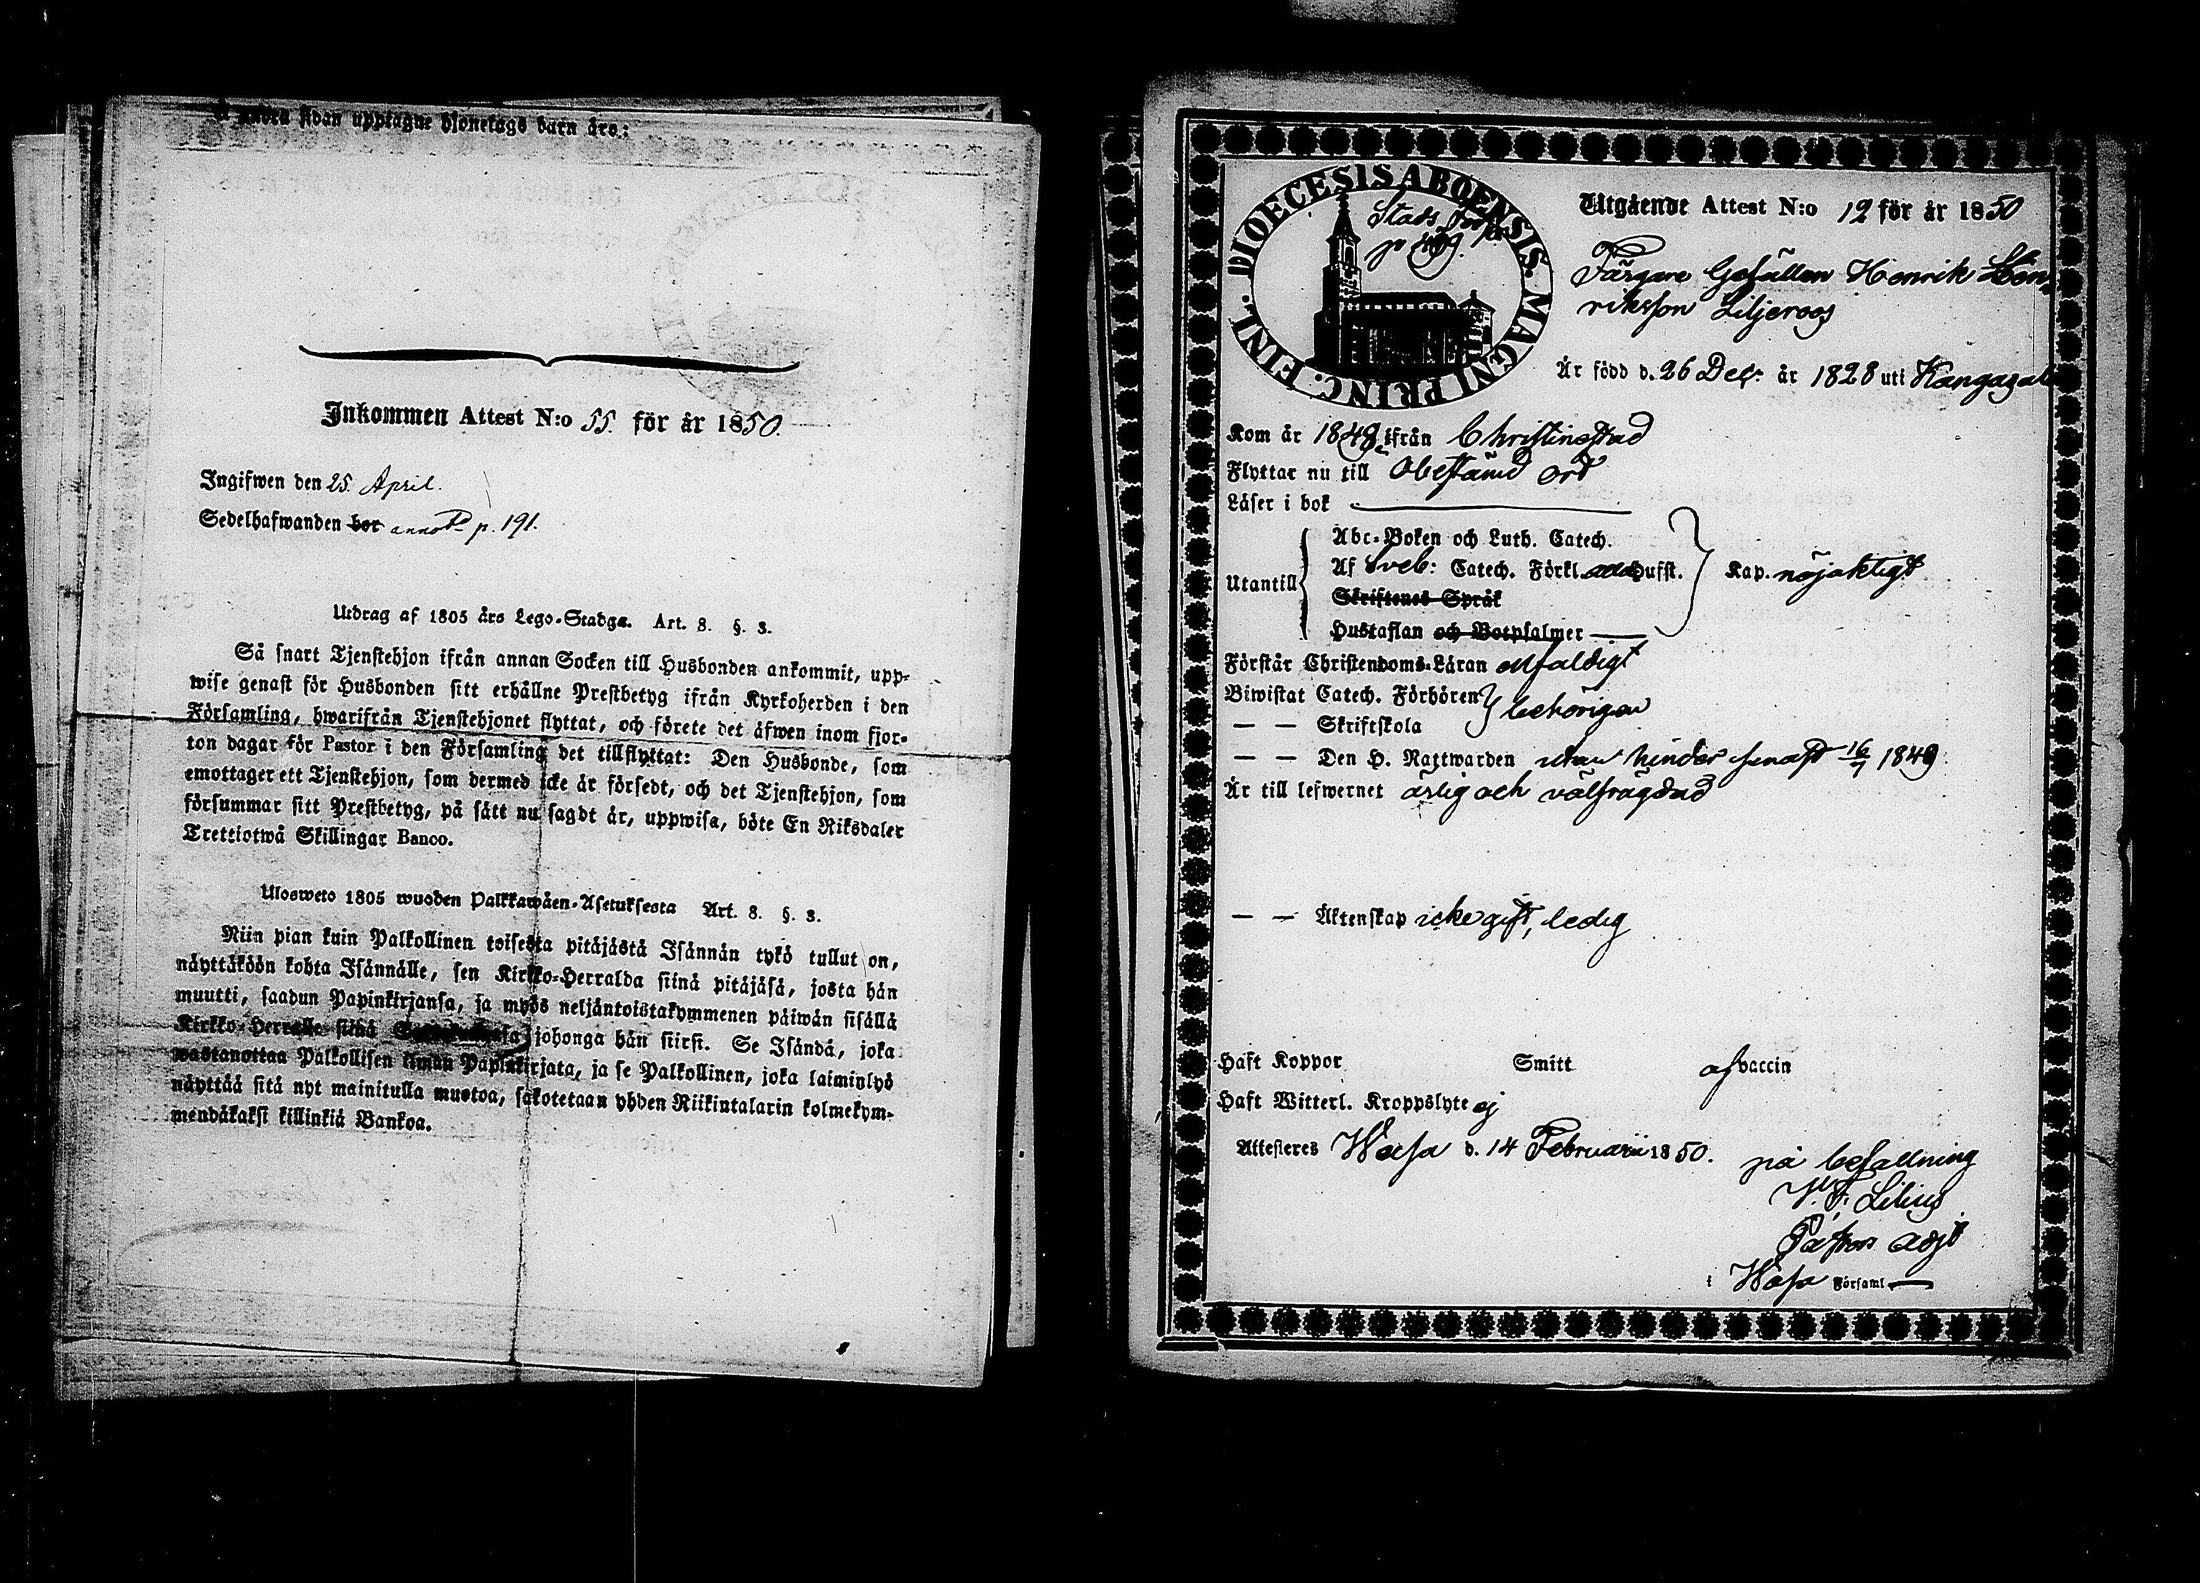 å andra sidan upptagne hjonelags barn äro:
Inkommen Attest N:o 55. för år 1850.
Ingifwen den 25. April.
Sedelhafwanden bor annot. p. 191.
Utdrag af 1805 års Lego-Stadga. Art. 8. §. 3.
Så snart Tjenstehjon ifrån annan Socken till Husbonden ankommit, upp-
wise genast för Husbonden sitt erhållne Prestbetyg ifrån Kyrkoherden i den
Församling, hwarifrån Tjenstehjonet flyttat, och förete det äfwen inom fjor-
ton dagar för Pastor i den Församling det tillflyttat: Den Husbonde, som
emottager ett Tjenstehjon, som dermed icke är försedt, och det Tjenstehjon, som
försummar sitt Prestbetyg, på sätt nu sagdt är, uppwisa, böte En Riksdaler
Trettiotwå Skillingar Banco.
Ulosweto 1805 wuoden Palkkawäen-Asetuksesta Art. 8. §. 3.
Niin pian kuin Palkollinen toisesta pitäjästä Isännän tykö tullut on,
näyttäköön kohta Isännälle, sen Kirkko-Herralda siinä pitäjäsä, josta hän
muutti, saadun Papinkirjansa, ja myös neljäntoistakymmenen päiwän sisällä
Kirkko-Herralle siinä johonga hän siirsi. Se Isändä, joka
wastanottaa Palkollisen ilman Papinkirjata, ja se Palkollinen, joka laiminlyö
näyttää sitä nyt mainitulla muotoa, sakotetaan yhden Riikintalarin kolmekym-
mendäkaksi killinkiä Bankoa.
DIOECESIS ABOENSIS. MAGNI PRINC. FINL.
Stads
p 489.
Utgående Attest N:o 12 för år 1850
Färgare Gesällen Henrik Hen-
riksson Liljeroos
Är född d. 26 Dec. år 1828 uti Kangasala
Kom år 1848 ifrån Christinestad
Flyttar nu till Obestämd ort
Läser i bok
Abc-Boken och Luth. Catech.
Utantill Af Sveb: Catech. Förkl. Hufst. Kap. nöjaktigt
Skriftenes Språk
Hustaflan och Botpsalmer
Förstår Christendoms-Läran enfaldigt
Biwistat Catech. Förhören behörigen
— — Skriftskola
— — Den H. Nattwarden utan hinder senast 16/7 1849
Är till lefwernet ärlig och välfrägdad
— — Äktenskap icke gift, ledig
Haft Koppor Smitt af vaccin
Haft Witterl. Kroppslyte ej
Attesteres Wasa d. 14 Februarii 1850.
på befallning
V. F. Lilius
Past. adjt
i Wasa Församl